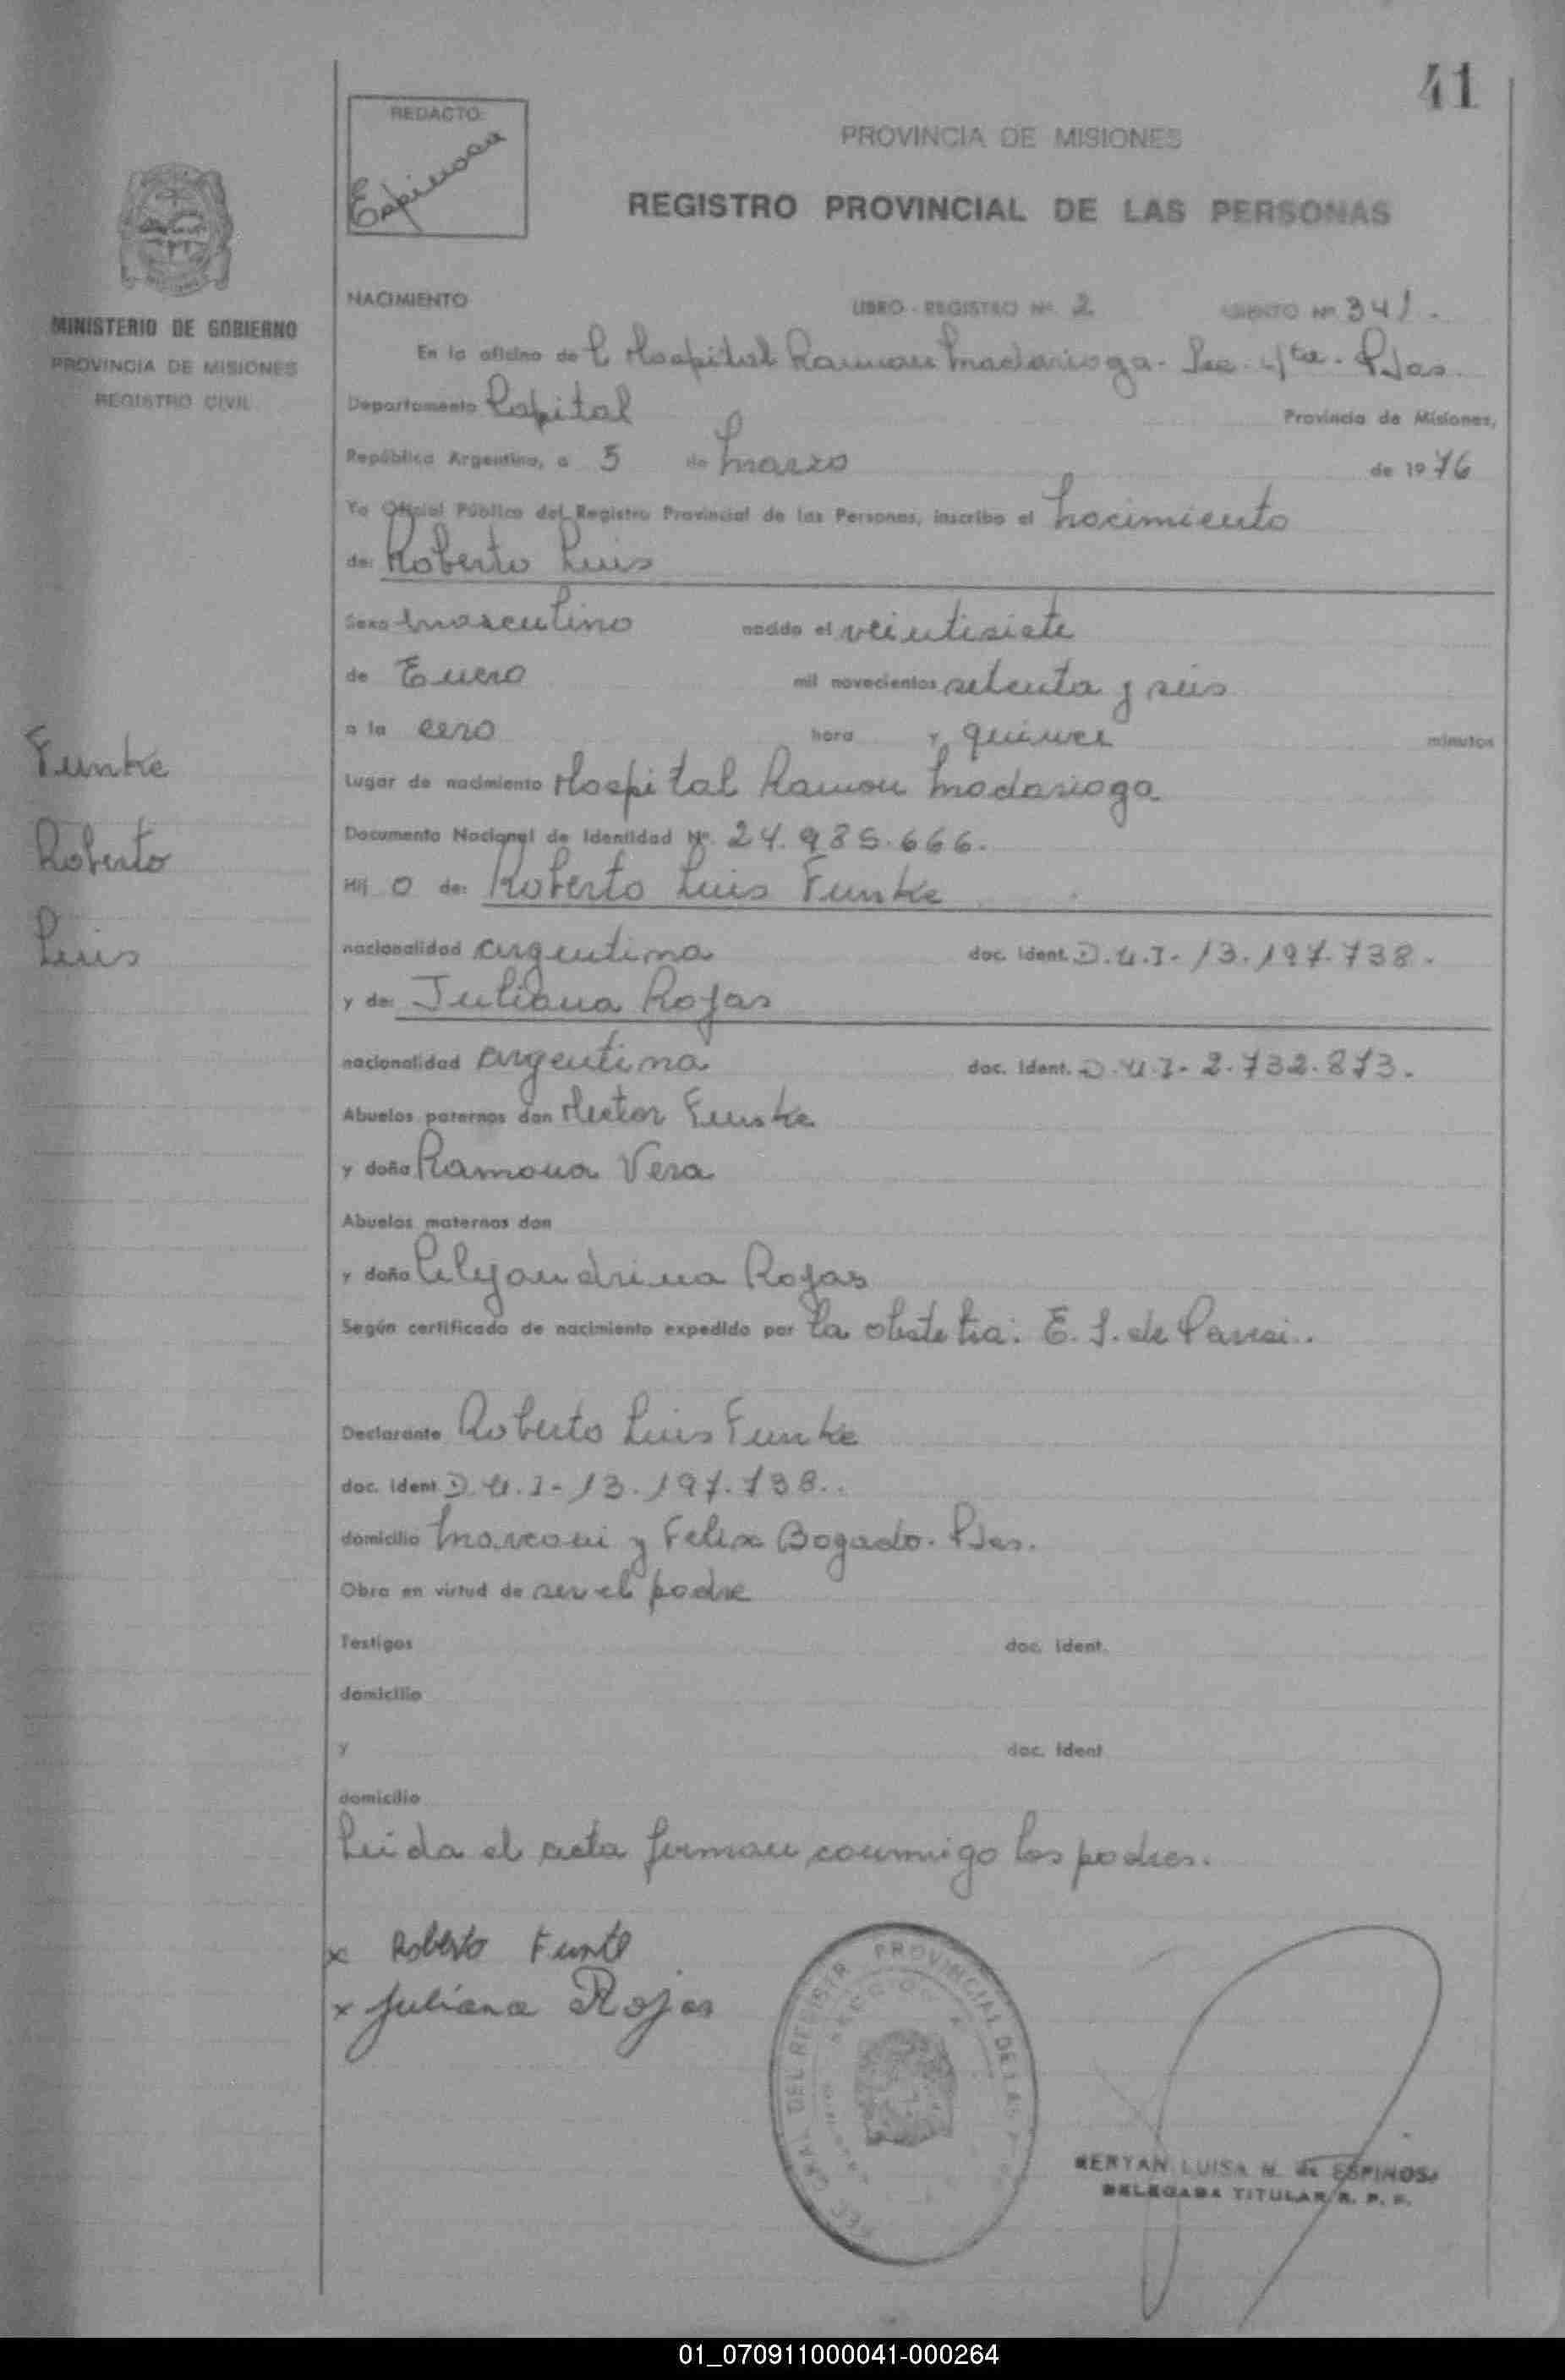 41
REDACTO:
Espinosa
PROVINCIA DE MISIONES
REGISTRO PROVINCIAL DE LAS PERSONAS
MINISTERIO DE GOBIERNO
PROVINCIA DE MISIONES
REGISTRO CIVIL
NACIMIENTO LIBRO - REGISTRO Nº 2 ASIENTO Nº 341.
En la oficina de l Hospital Ramon Madariaga - Sec. 4ta. Pdas.
Departamento Capital Provincia de Misiones,
República Argentina, a 5 de Marzo de 1976
Yo Oficial Público del Registro Provincial de las Personas, inscribo el Nacimiento
de: Roberto Luis
Sexo Masculino nacido el veintisiete
de Enero mil novecientos setenta y seis
a la cero hora y quince minutos
Funke
Roberto
Luis
Lugar de nacimiento Hospital Ramon Madariaga
Documento Nacional de Identidad Nº 24.985.666.
Hij o de: Roberto Luis Funke
nacionalidad argentina doc. ident. D.N.I- 13.197.738.
y de: Juliana Rojas
nacionalidad argentina doc. ident. D.N.I- 2.732.873.
Abuelos paternos don Hector Funke
y doña Ramona Vera
Abuelos maternos don
y doña Alejandrina Rojas
Según certificado de nacimiento expedido por la obstetra: E. S. de
Declarante Roberto Luis Funke
doc. ident D.N.I- 13.197.738..
domicilio Marconi y Felix Bogado. Pdas.
Obra en virtud de ser el padre
Testigos doc. ident.
domicilio
y doc. ident
domicilio
Leida el acta firman conmigo los padres.
x Roberto Funke
x Juliana Rojas
PROVINCIAL DE LAS
DEL REGISTR
LUISA N. de ESPINOSA
DELEGADA TITULAR R. P. P.
01_070911000041-000264